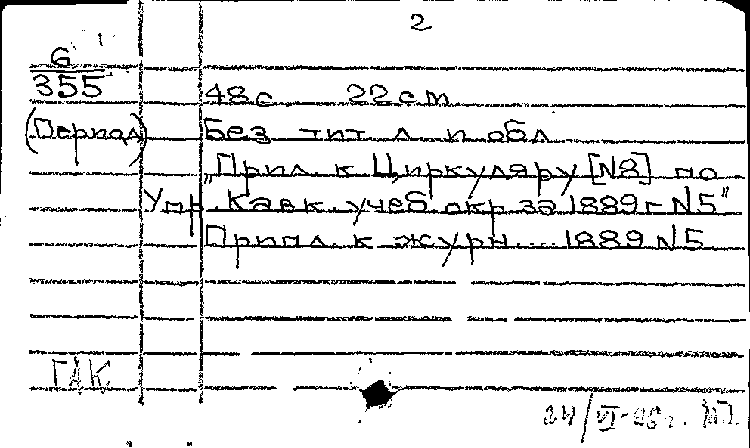 2
6
355
48 с 22 см
(Период) Без тит л и обл
„Прил. к Циркуляру [N8] по
Упр. Кавк. учеб. окр. за 1889 г N5"
Припл. к журн.... 1889 N5
ГАК
24/VI-